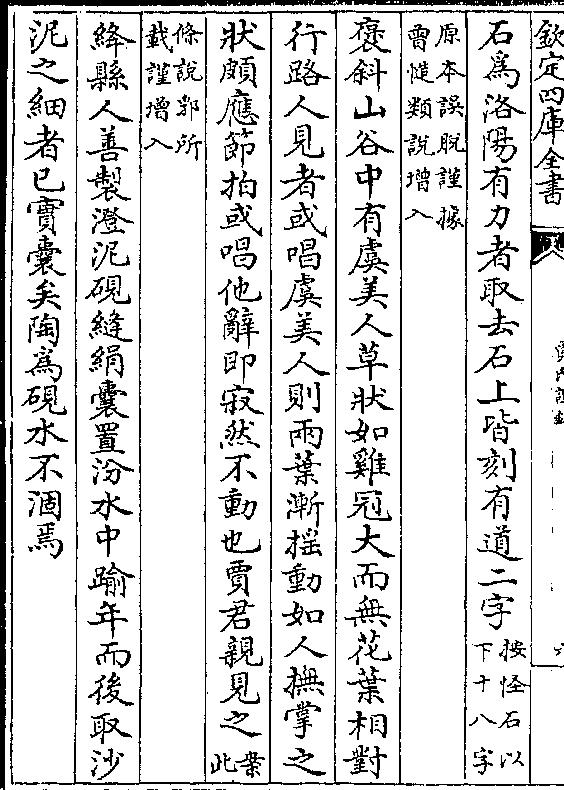 欽定四庫全書
石爲洛陽有力者取去石上皆刻有道二字
按怪石以
下十八字
原本誤脫謹據
曾慥類說增入
褒斜山谷中有虞美人草狀如雞冠大而無花葉相對
行路人見者或唱虞美人則兩葉漸搖動如人撫掌之
狀頗應節拍或唱他辭即寂然不動也賈君親見之
案
此
條說郛所
載謹增入
絳縣人善製澄泥硯縫絹囊置汾水中踰年而後取沙
泥之細者已實囊矣陶爲硯水不涸焉